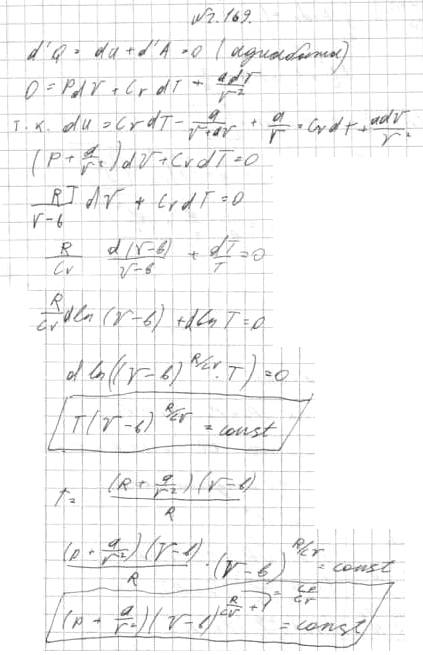 №2.169.
d'Q = du + d'A = 0 (адиабата)
0 = PdV + CvdT + adV/V²
т.к. du = CvdT - a/(V+dV) + a/V = CvdT + adV/V²
(P + a/V²)dV + CvdT = 0
RT/(V-b) dV + CvdT = 0
R/Cv d(V-b)/(V-b) + dT/T = 0
R/Cv dln(V-b) + dlnT = 0
d ln((V-b)^(R/Cv) · T) = 0
T(V-b)^(R/Cv) = const
T = (R + a/V²)(V-b)/R
(p + a/V²)(V-b)/R · (V-b)^(R/Cv) = const
(p + a/V²)(V-b)^(R/Cv + 1 = Cp/Cv) = const